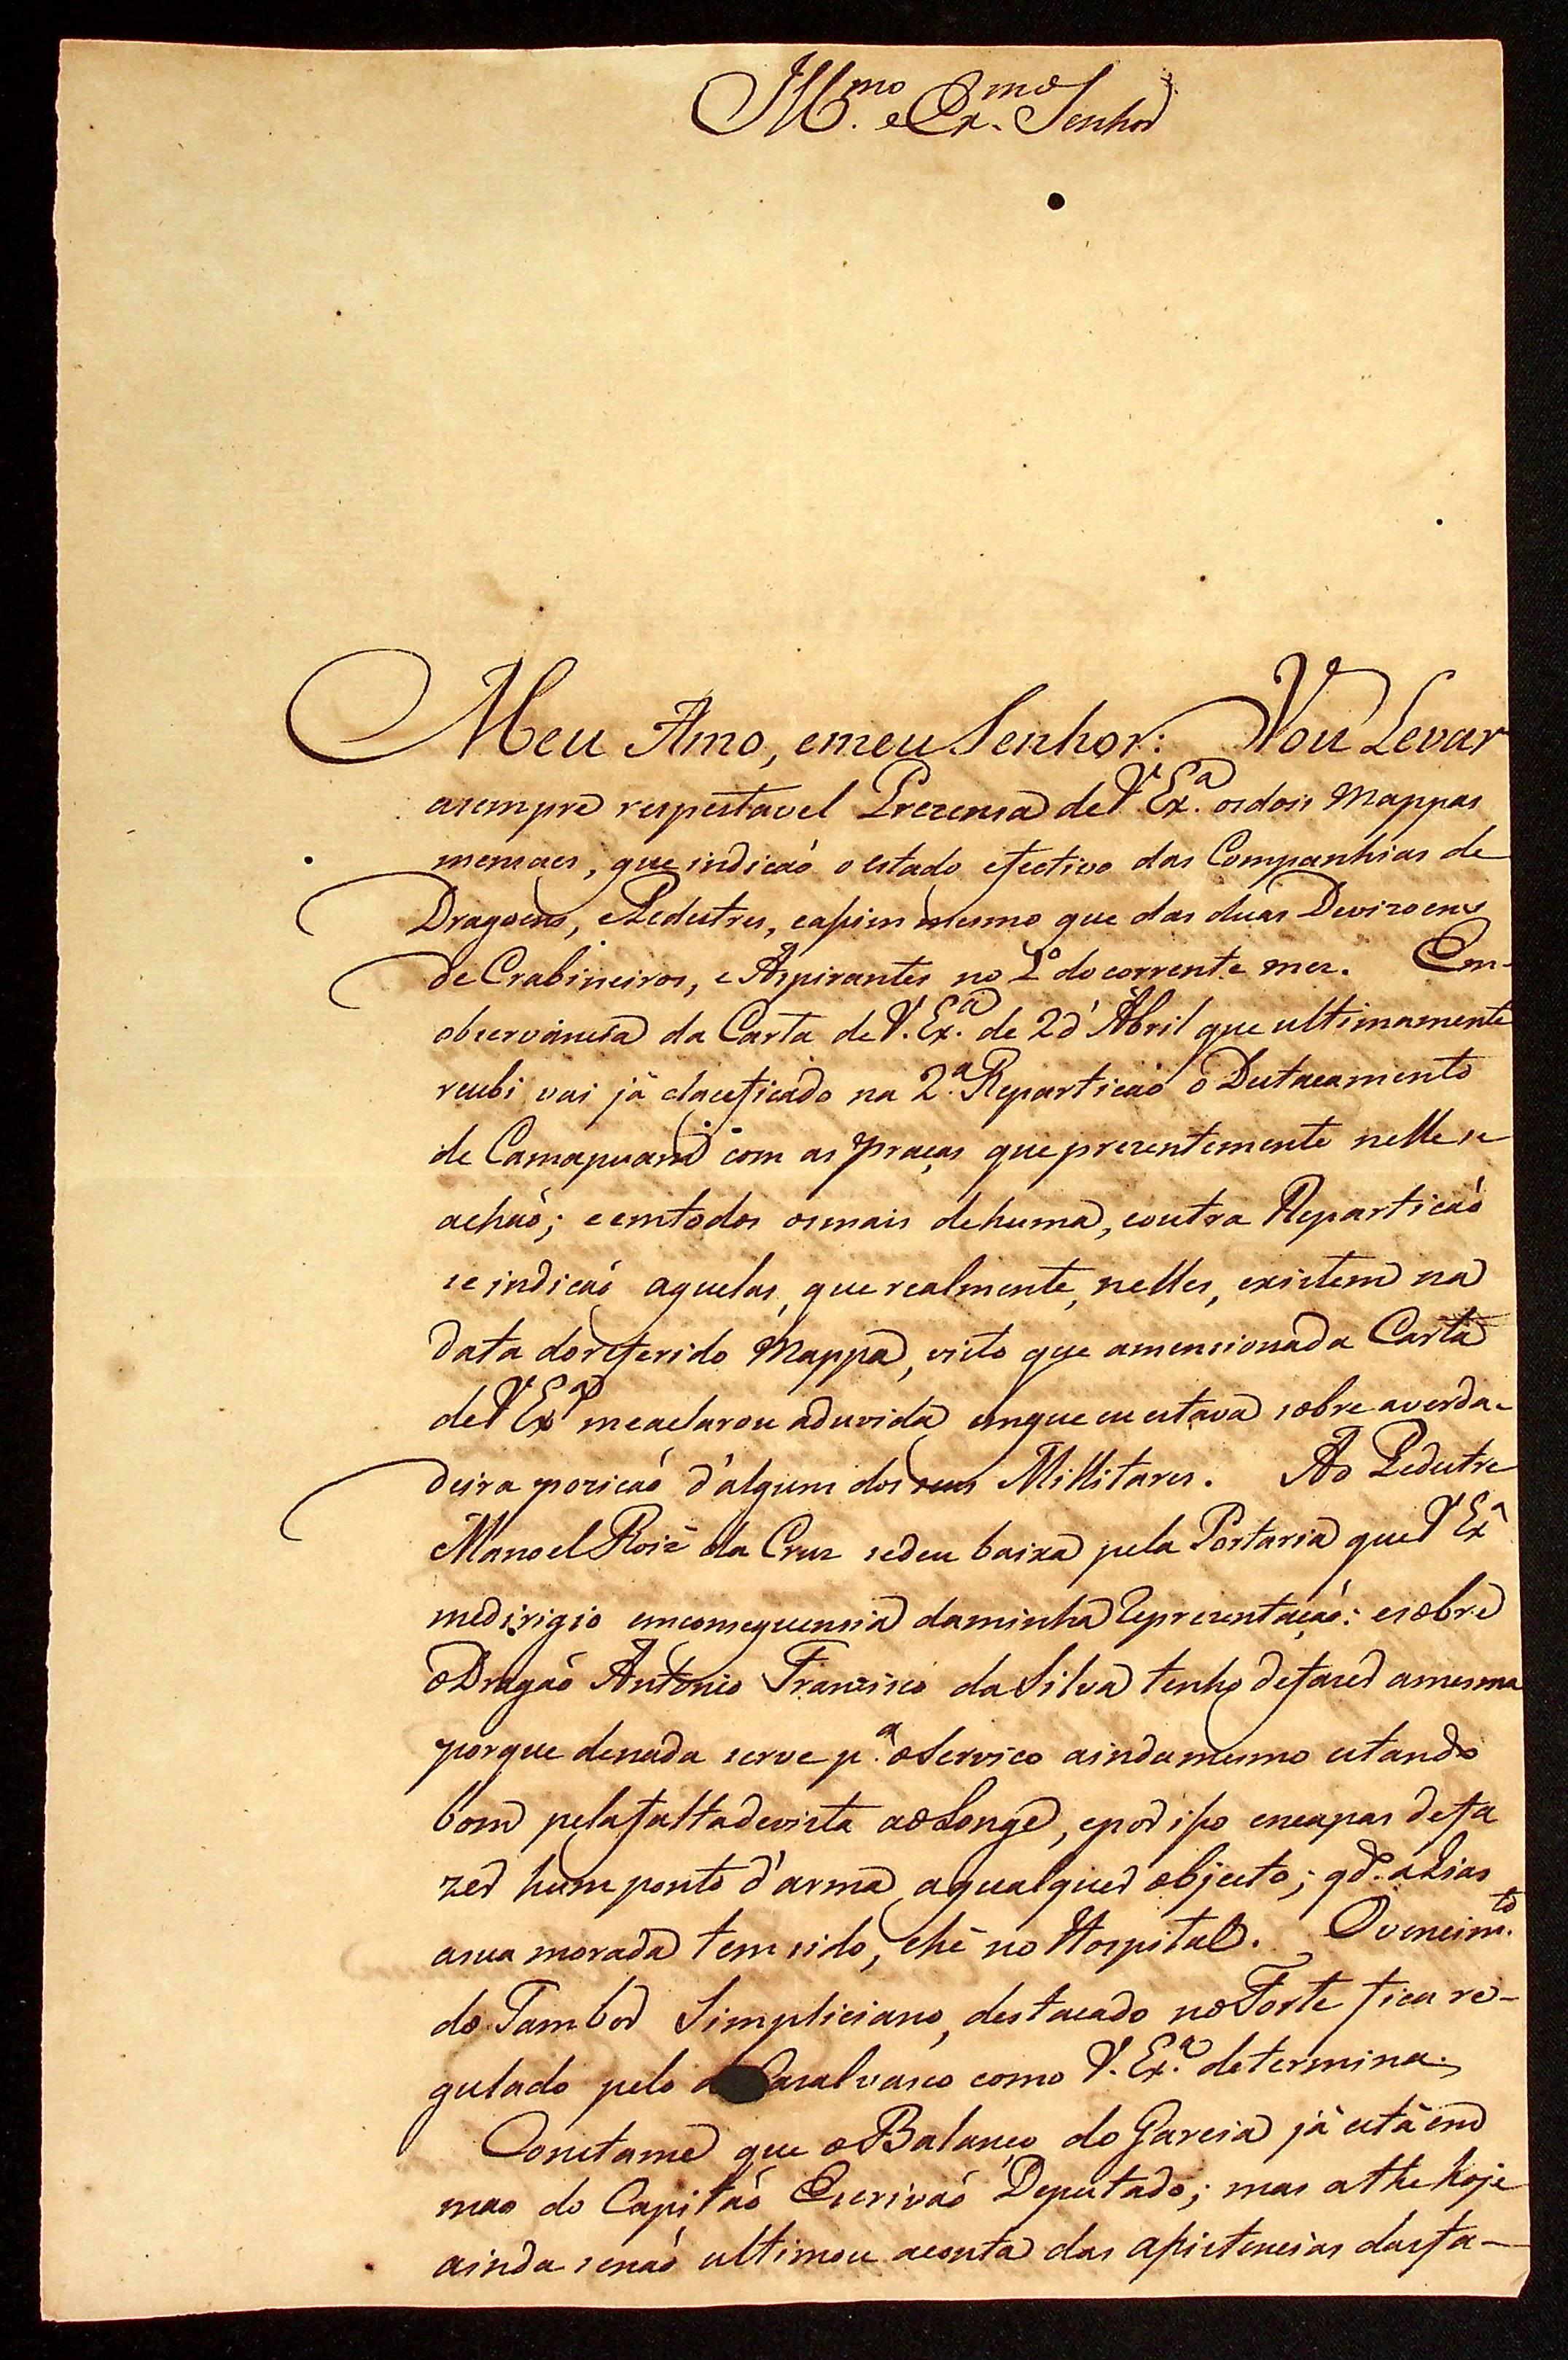 Ill.mo e Ex.mo Senhor
Meu Amo, emeu Senhor: Vou Levar
asempre respestavel Prezensa deV.Ex.a osdois Mappas
mensaes, que indicaó o estado efectivo das Companhias de
Dragoens, ePedestres, eassim mesmo que das duas Devizoens
de Crabineiros, e Aspirantes no 1º do corrente mez. Em
observancia da Carta de V.Ex.a de 2 d'Abril que ultimamente
recebi vai jáclaceficado na 2.a Reparticaó o Destacamento
de Camapuam com as praças que prezentemente nelle se
achaó; e emtodos osmais dehuma, eoutra Reparticaó
se indicaó aquelas, que realmente, nelles, existem na
data doreferido Mappa, visto que amensionada Carta
deV Ex.a meaclarou aduvida emque eu estava sobre averda-
deira pozicaó d'algum dos seus Millitares. Ao Pedestre
Manoel Roiz da Cruz sedeu baixa pela Portaria queV Ex.a
medirigio emconsequensia daminha Reprezentaçaó: esobre
oDragaó Antonio Francisco daSilva tenho defazer amesma
porque denada serve p.a oServico aindamesmo estando
bom pelafaltadevista aoLonge, epor isso encapas defa
zer hum ponto d'arma aqualquer objecto; qd.o aLias
asua morada tem sido, ehé no Hospital. Ovencim.to
do Tambor Simpliciano, destacado noForte fica re-
gulado pelo d Casalvasco como V.Ex.a determina.
Constame que oBalanço do Garcia já está em
mao do Capitaó Escrivaó Deputado; mas athe hoje
ainda senaó ultimou aconta das assistencias dasfa-